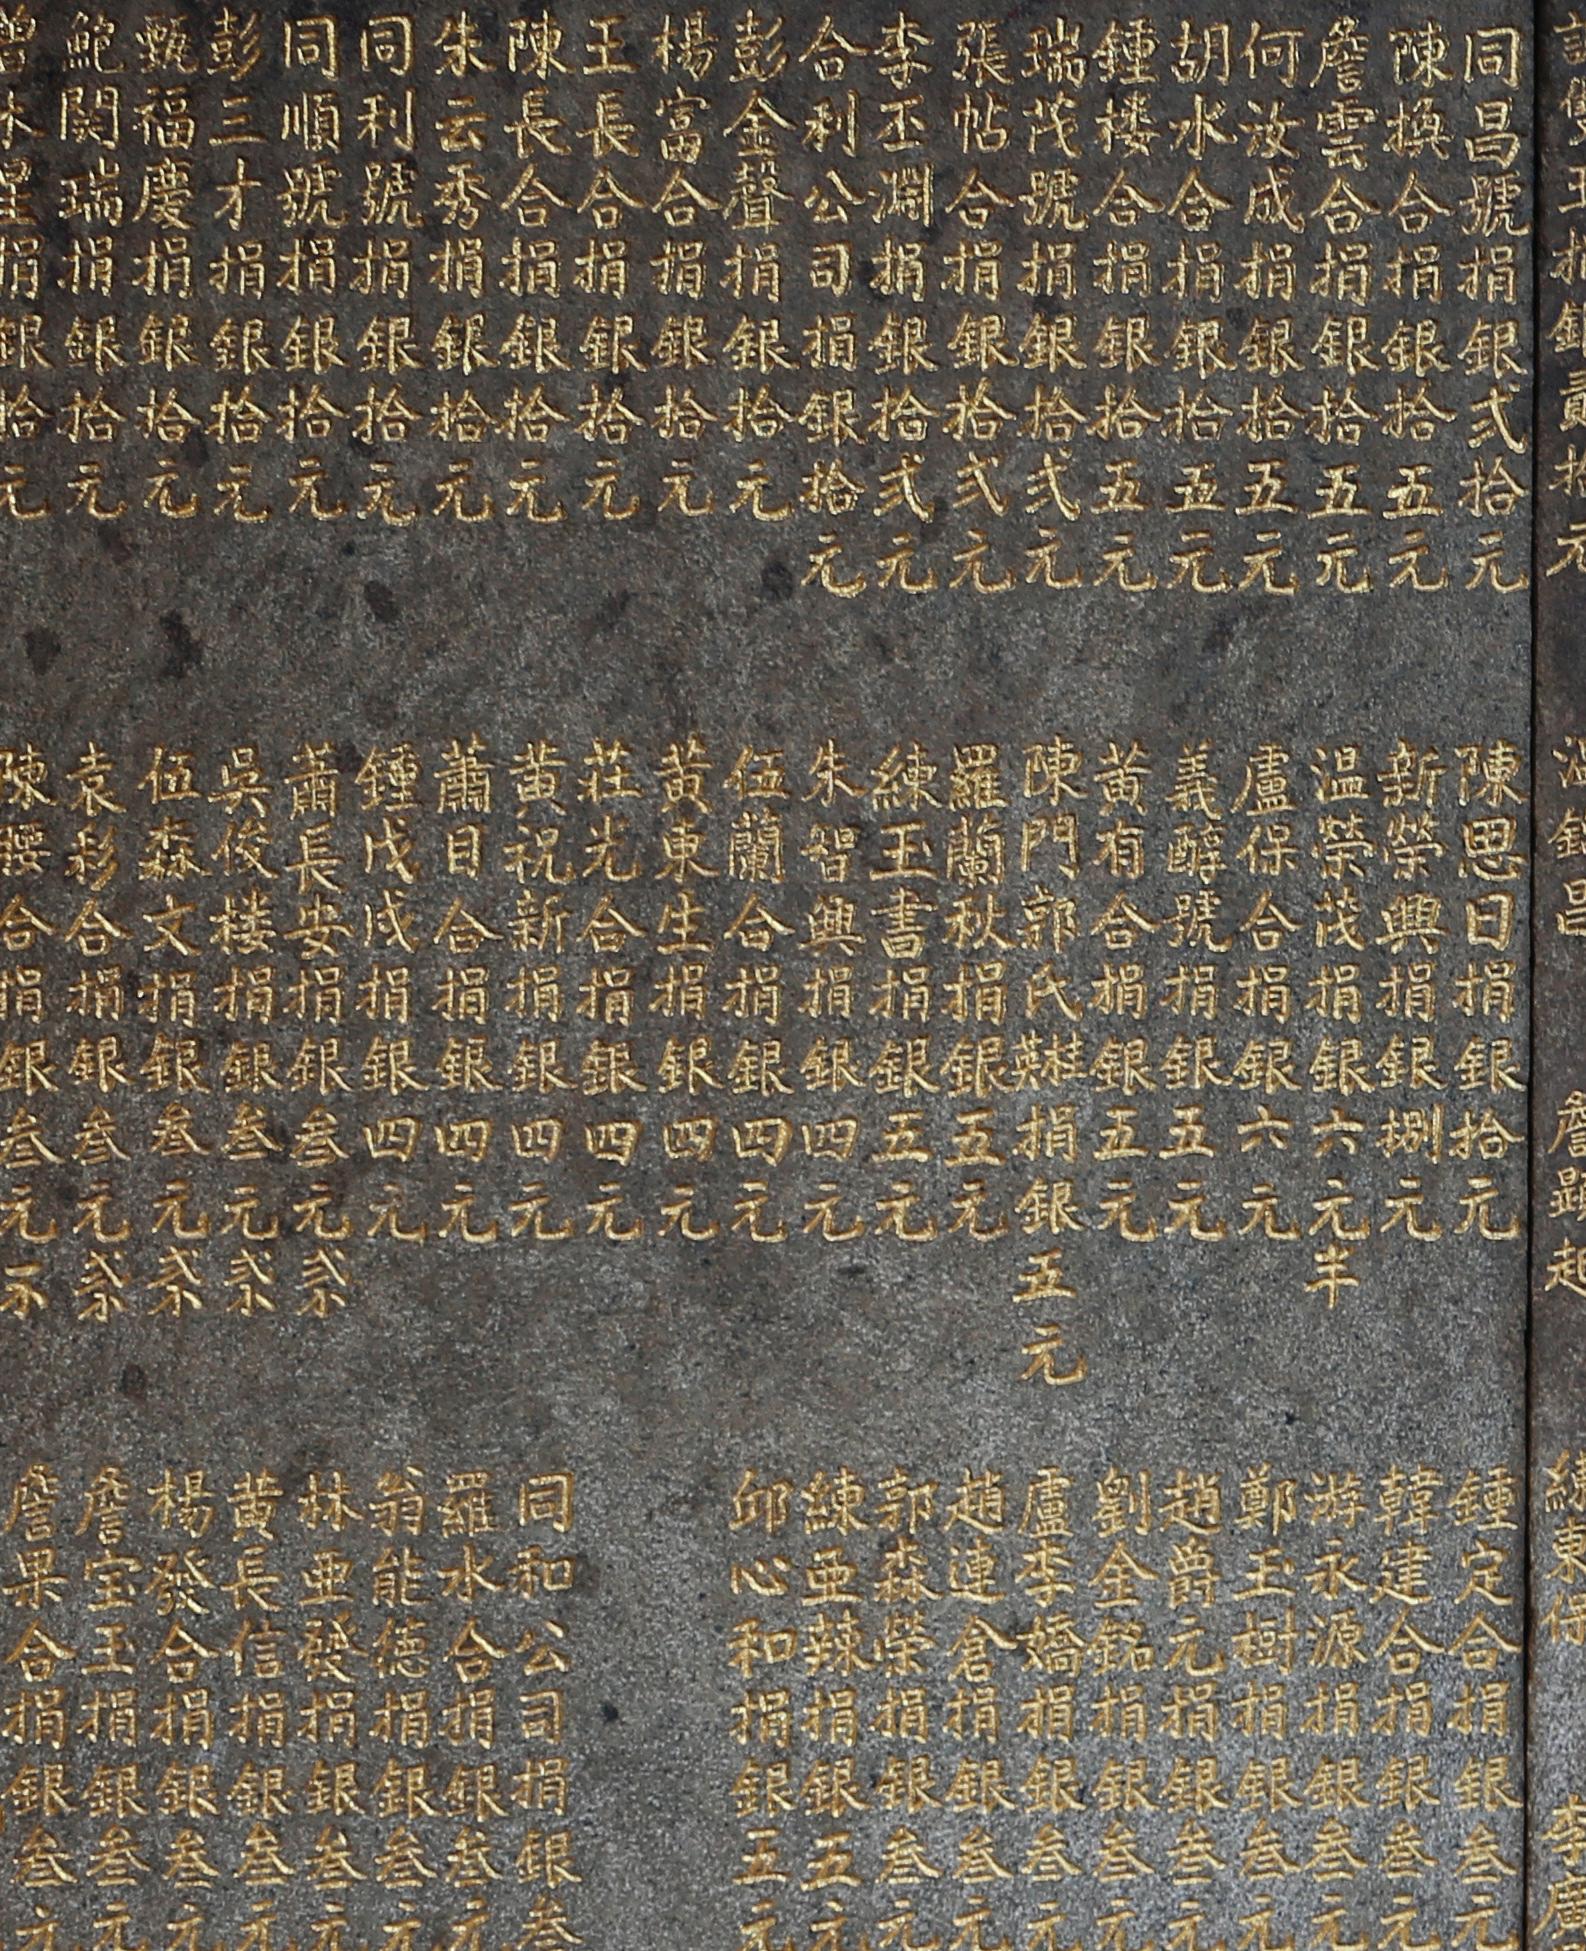 同昌號捐銀弍拾元
陳換合捐銀拾五元
詹雲合捐銀拾五元
何汝成捐銀拾五元
胡水合捐銀拾五元
鍾楼合捐銀拾五元
瑞茂號捐銀拾弍元
張帖合捐銀拾弍元
李丕淵捐銀拾弍元
合利公司捐銀拾元
彭金聲捐銀拾元
楊富合捐銀拾元
王長合捐銀拾元
陳長合捐銀拾元
朱云秀捐銀拾元
同利號捐銀拾元
同順號捐銀拾元
彭三才捐銀拾元
甄福慶捐銀拾元
鮑閑瑞捐銀拾元
陳思日捐銀拾元
新榮興捐銀捌元
温榮茂捐銀六元半
盧保合捐銀六元
義醇號捐銀五元
黄有合捐銀五元
陳門郭氏英桂捐銀五元
羅蘭秋捐銀五元
練玉書捐銀五元
朱智興捐銀四元
伍蘭合捐銀四元
黄東生捐銀四元
莊光合捐銀四元
黄祝新捐銀四元
蕭日合捐銀四元
鍾戊戍捐銀四元
蕭長安捐銀叁元弍
吳俊楼捐銀叁元弍
伍森文捐銀叁元弍
袁彩合捐銀叁元弍
鍾定合捐銀叁元
韓建合捐銀叁元
游永源捐銀叁元
鄭玉樹捐銀叁元
趙爵元捐銀叁元
劉全銘捐銀叁元
盧李嬌捐銀叁元
趙連倉捐銀叁元
郭森榮捐銀叁元
練亜辣捐銀五元
邱心和捐銀五元
同和公司捐銀叁
羅水合捐銀叁元
翁能德捐銀叁元
林亜發捐銀叁元
黄長信捐銀叁元
楊發合捐銀叁元
詹宝玉捐銀叁元
詹果合捐銀叁元